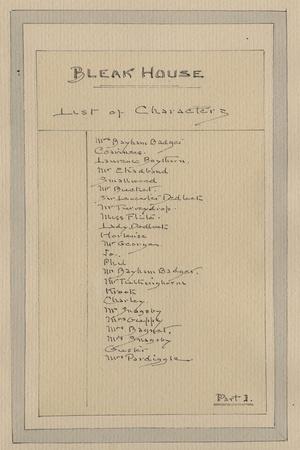 BLEAK HOUSE
List of Characters
Mrs Bayham Badger
Coavinses.
Lawrence Boythorn.
Mr Chadband
Smallweed
Mr Bucket.
Sir Leicester Dedlock
Mr Turveydrop.
Miss Flite.
Lady Dedlock
Hortense
Mr George.
Jo.
Phil
Mr Bayham Badger.
Mr Tulkinghorn
Krook
Charley
Mr Snagsby
Mrs Guppy
Mrs Bagnet.
Mrs Snagsby
Guster
Mrs Pardiggle
Part 1.